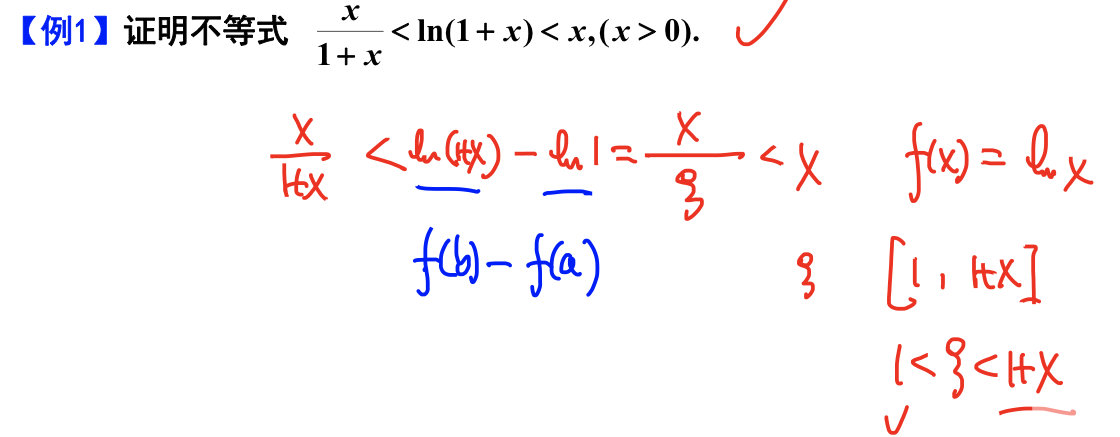 【例1】证明不等式 x/(1+x) < ln(1+x) < x, (x > 0).
x/(1+x) < ln(1+x) − ln1 = x/ξ < x f(x) = ln x
f(b) − f(a) ξ [1, 1+x]
1 < ξ < 1+x